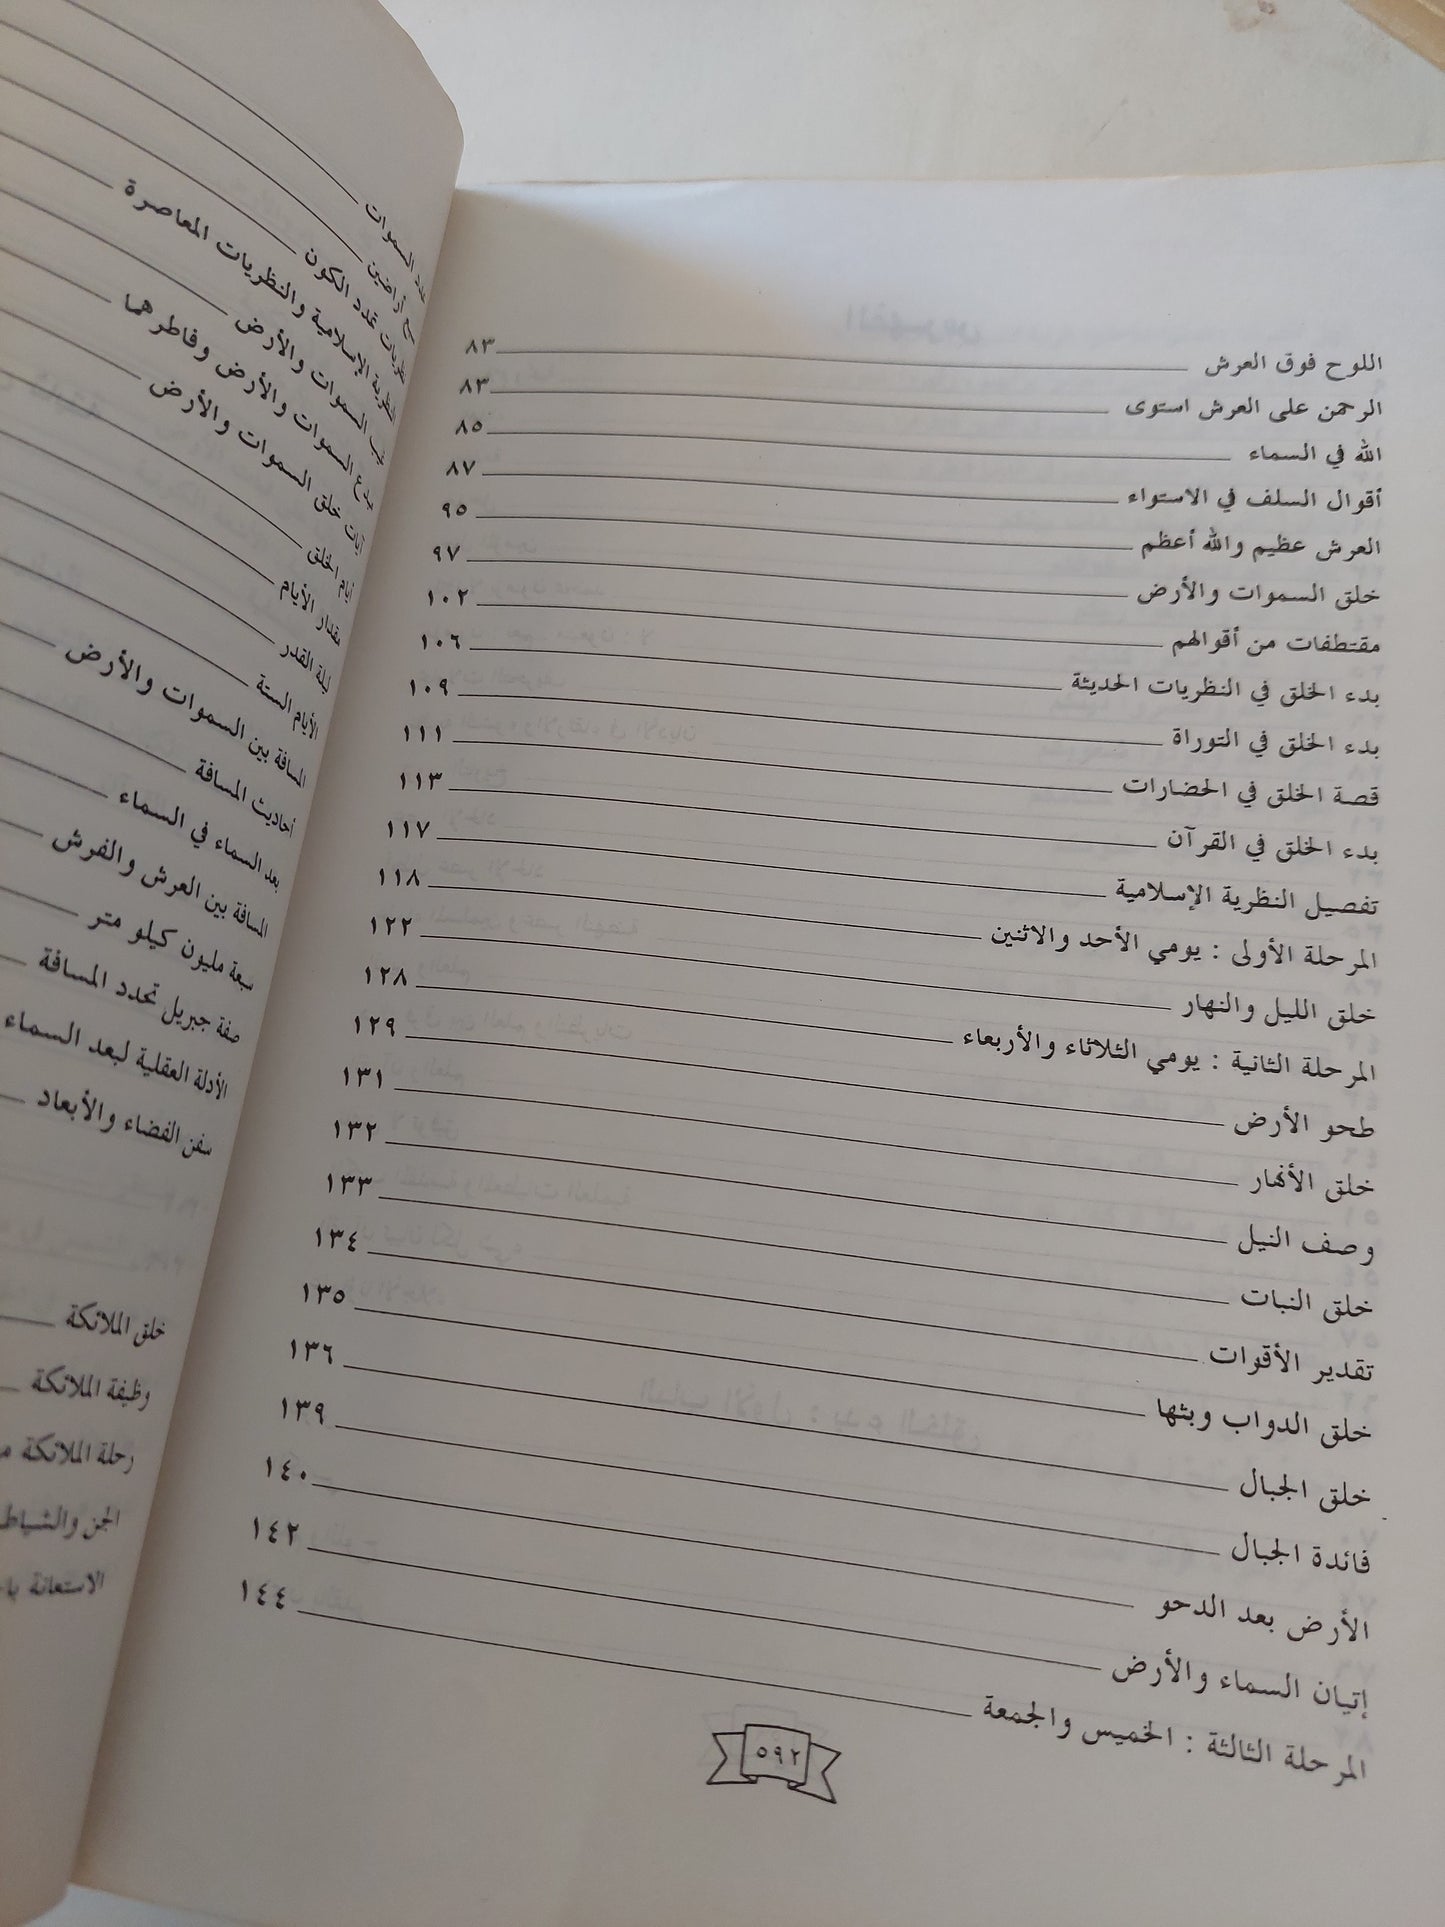 اللوح فوق العرش ٨٣
الرحمن على العرش استوى ٨٣
الله في السماء ٨٥
أقوال السلف في الاستواء ٨٧
العرش عظيم والله أعظم ٩٥
خلق السموات والأرض ٩٧
مقتطفات من أقوالهم ١٠٢
بدء الخلق في النظريات الحديثة ١٠٦
بدء الخلق في التوراة ١٠٩
قصة الخلق في الحضارات ١١١
بدء الخلق في القرآن ١١٣
تفصيل النظرية الإسلامية ١١٧
المرحلة الأولى : يومي الأحد والاثنين ١١٨
خلق الليل والنهار ١٢٢
المرحلة الثانية : يومي الثلاثاء والأربعاء ١٢٨
طحو الأرض ١٢٩
خلق الأنهار ١٣١
وصف النيل ١٣٢
خلق النبات ١٣٣
تقدير الأقوات ١٣٤
خلق الدواب وبثها ١٣٥
خلق الجبال ١٣٦
فائدة الجبال ١٣٩
الأرض بعد الدحو ١٤٠
إتيان السماء والأرض ١٤٢
المرحلة الثالثة : الخميس والجمعة ١٤٤
٥٩٢
عدد السموات
سبع أراضين
نظريات تمدد الكون
النظرية الإسلامية والنظريات المعاصرة
السموات والأرض
السموات والأرض وفاطرهما
آيات خلق السموات والأرض
أيام الخلق
مقدار الأيام
ليلة القدر
الأيام الستة
المسافة بين السموات والأرض
أحاديث المسافة
بعد السماء في السماء
المسافة بين العرش والفرش
سبعة مليون كيلو متر
صفة جبريل تحدد المسافة
الأدلة العقلية لبعد السماء
سفن الفضاء والأبعاد
خلق الملائكة
وظيفة الملائكة
رحلة الملائكة
الجن
الاستعانة